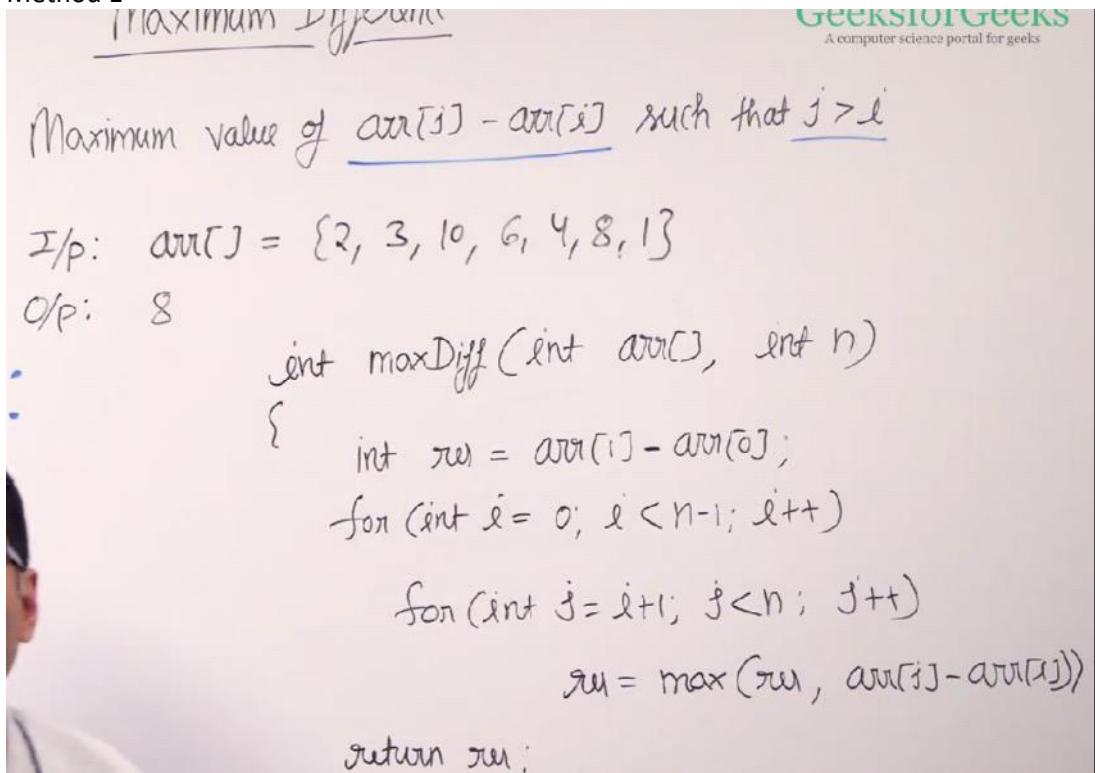 Method 1
Maximum
GeeksforGeeks
A computer science portal for geeks
Maximum value of arr[j] - arr[i] such that j > i
I/p: arr[] = {2, 3, 10, 6, 4, 8, 1}
O/p: 8
int maxDiff(int arr[], int n)
{
int res = arr[1] - arr[0];
for (int i = 0; i < n-1; i++)
for (int j = i+1; j < n; j++)
res = max(res, arr[j] - arr[i])
return res;